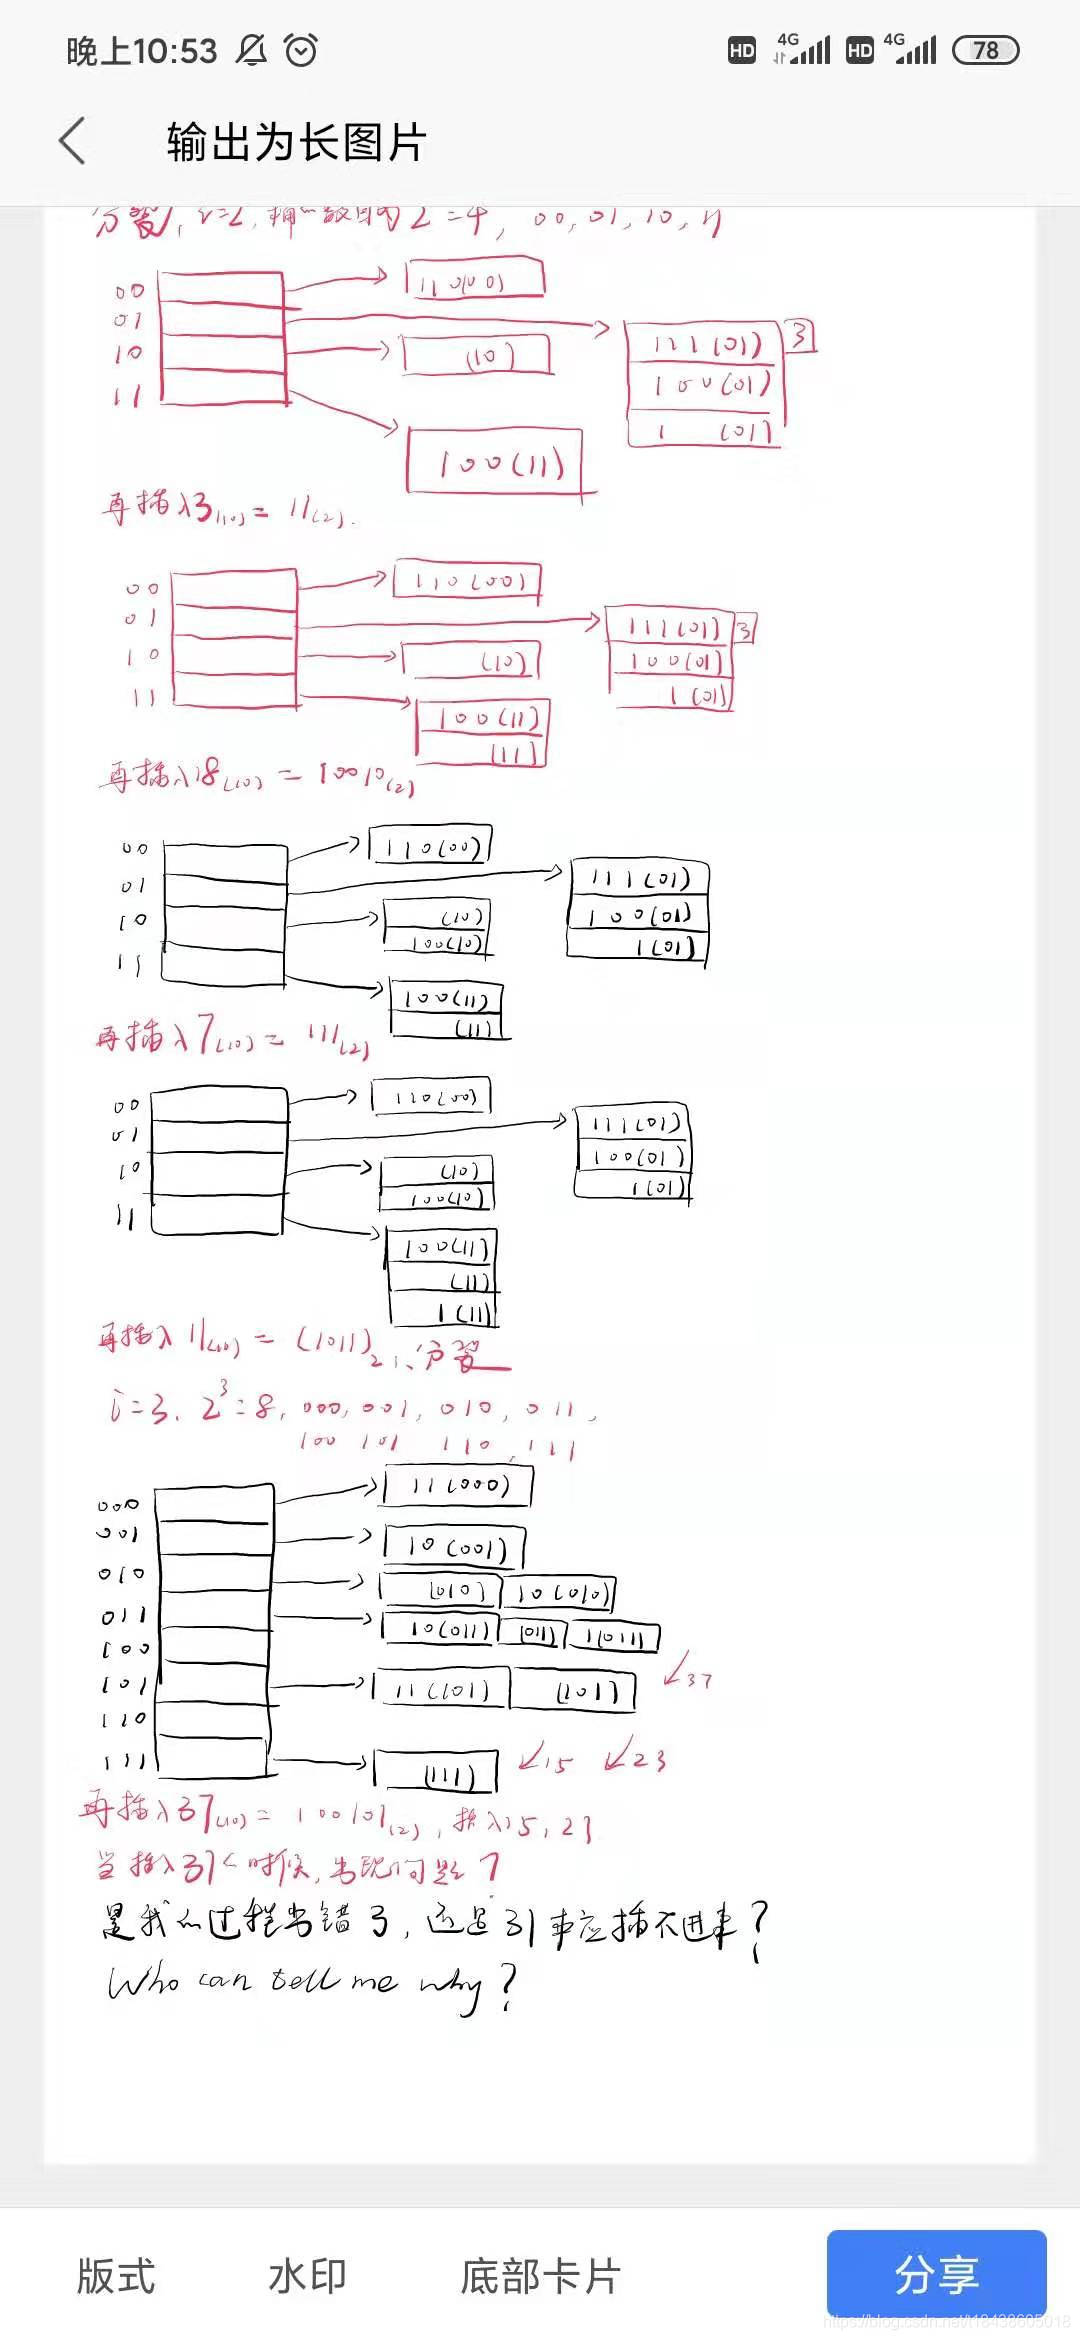 晚上10:53 HD 4G HD 4G 78
输出为长图片
分裂, i=2, 桶的数目为2 =4, 00, 01, 10, 11
00 110(00)
01 111(01) 3
100(01)
1 (01)
10 (10)
11 100(11)
再插入3(10) = 11(2).
00 110(00)
01 111(01) 3
100(01)
1(01)
10 (10)
11 100(11)
(11)
再插入18(10) = 10010(2)
00 110(00)
01 111(01)
100(01)
1(01)
10 (10)
100(10)
11 100(11)
(11)
再插入7(10) = 111(2)
00 110(00)
01 111(01)
100(01)
1(01)
10 (10)
100(10)
11 100(11)
(11)
1(11)
再插入11(10) = (1011)2, 分裂
i=3, 2³=8, 000, 001, 010, 011,
100 101 110, 111
000 11(000)
001 10(001)
010 (010) 10(010)
011 10(011) (011) 1(011)
100
101 11(101) (101) ↙37
110
111 (111) ↙15 ↙23
再插入37(10) = 100101(2), 插入15, 23
当插入31的时候, 出现问题了
是我的过程出错了, 还是31本应插不进来?
Who can tell me why?
版式 水印 底部卡片 分享
https://blog.csdn.net/t18438605018